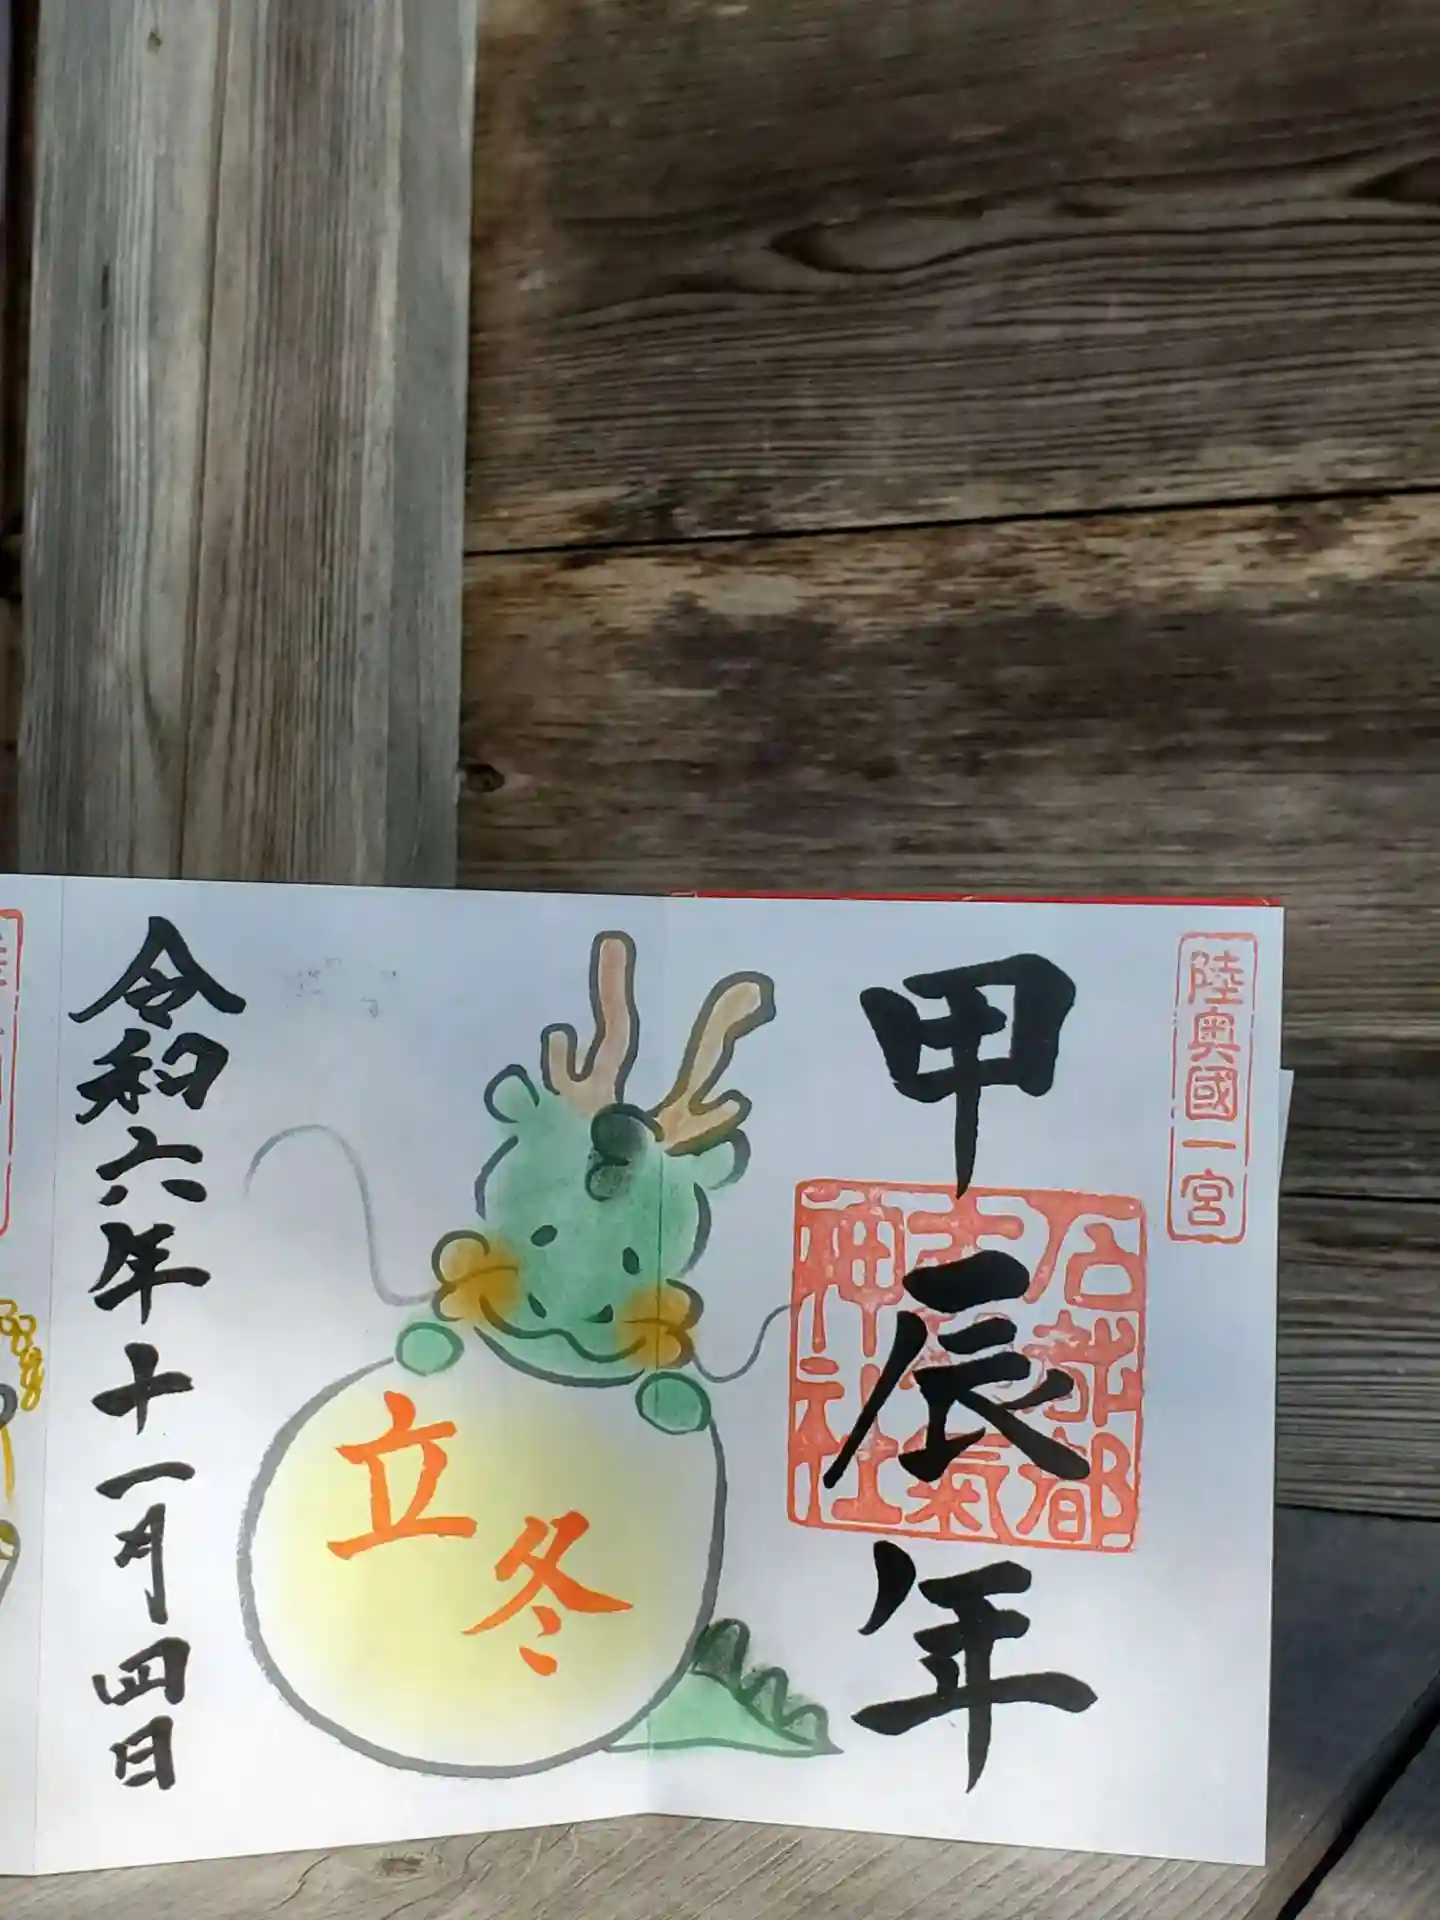 陸奥國一宮
甲辰年
石都都
古氣
神社
立冬
令和六年十一月四日